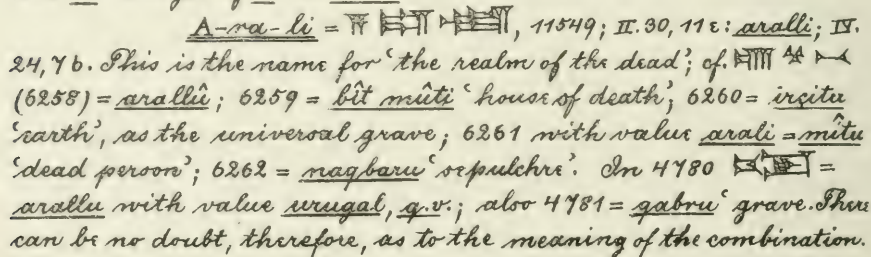 A-ra-li = 𒀀 𒊏 𒇷, 11549; II. 30, 11 c: aralli; IV.
24, 7 b. This is the name for 'the realm of the dead'; cf. 𒂍 𒆳 𒁁
(6258) = arallû; 6259 = bît mûti 'house of death'; 6260 = irçitu
'earth', as the universal grave; 6261 with value arali = mîtu
'dead person'; 6262 = naqbaru 'sepulchre'. In 4780 =
arallu with value urugal, q.v.; also 4781 = qabru 'grave. There
can be no doubt, therefore, as to the meaning of the combination.